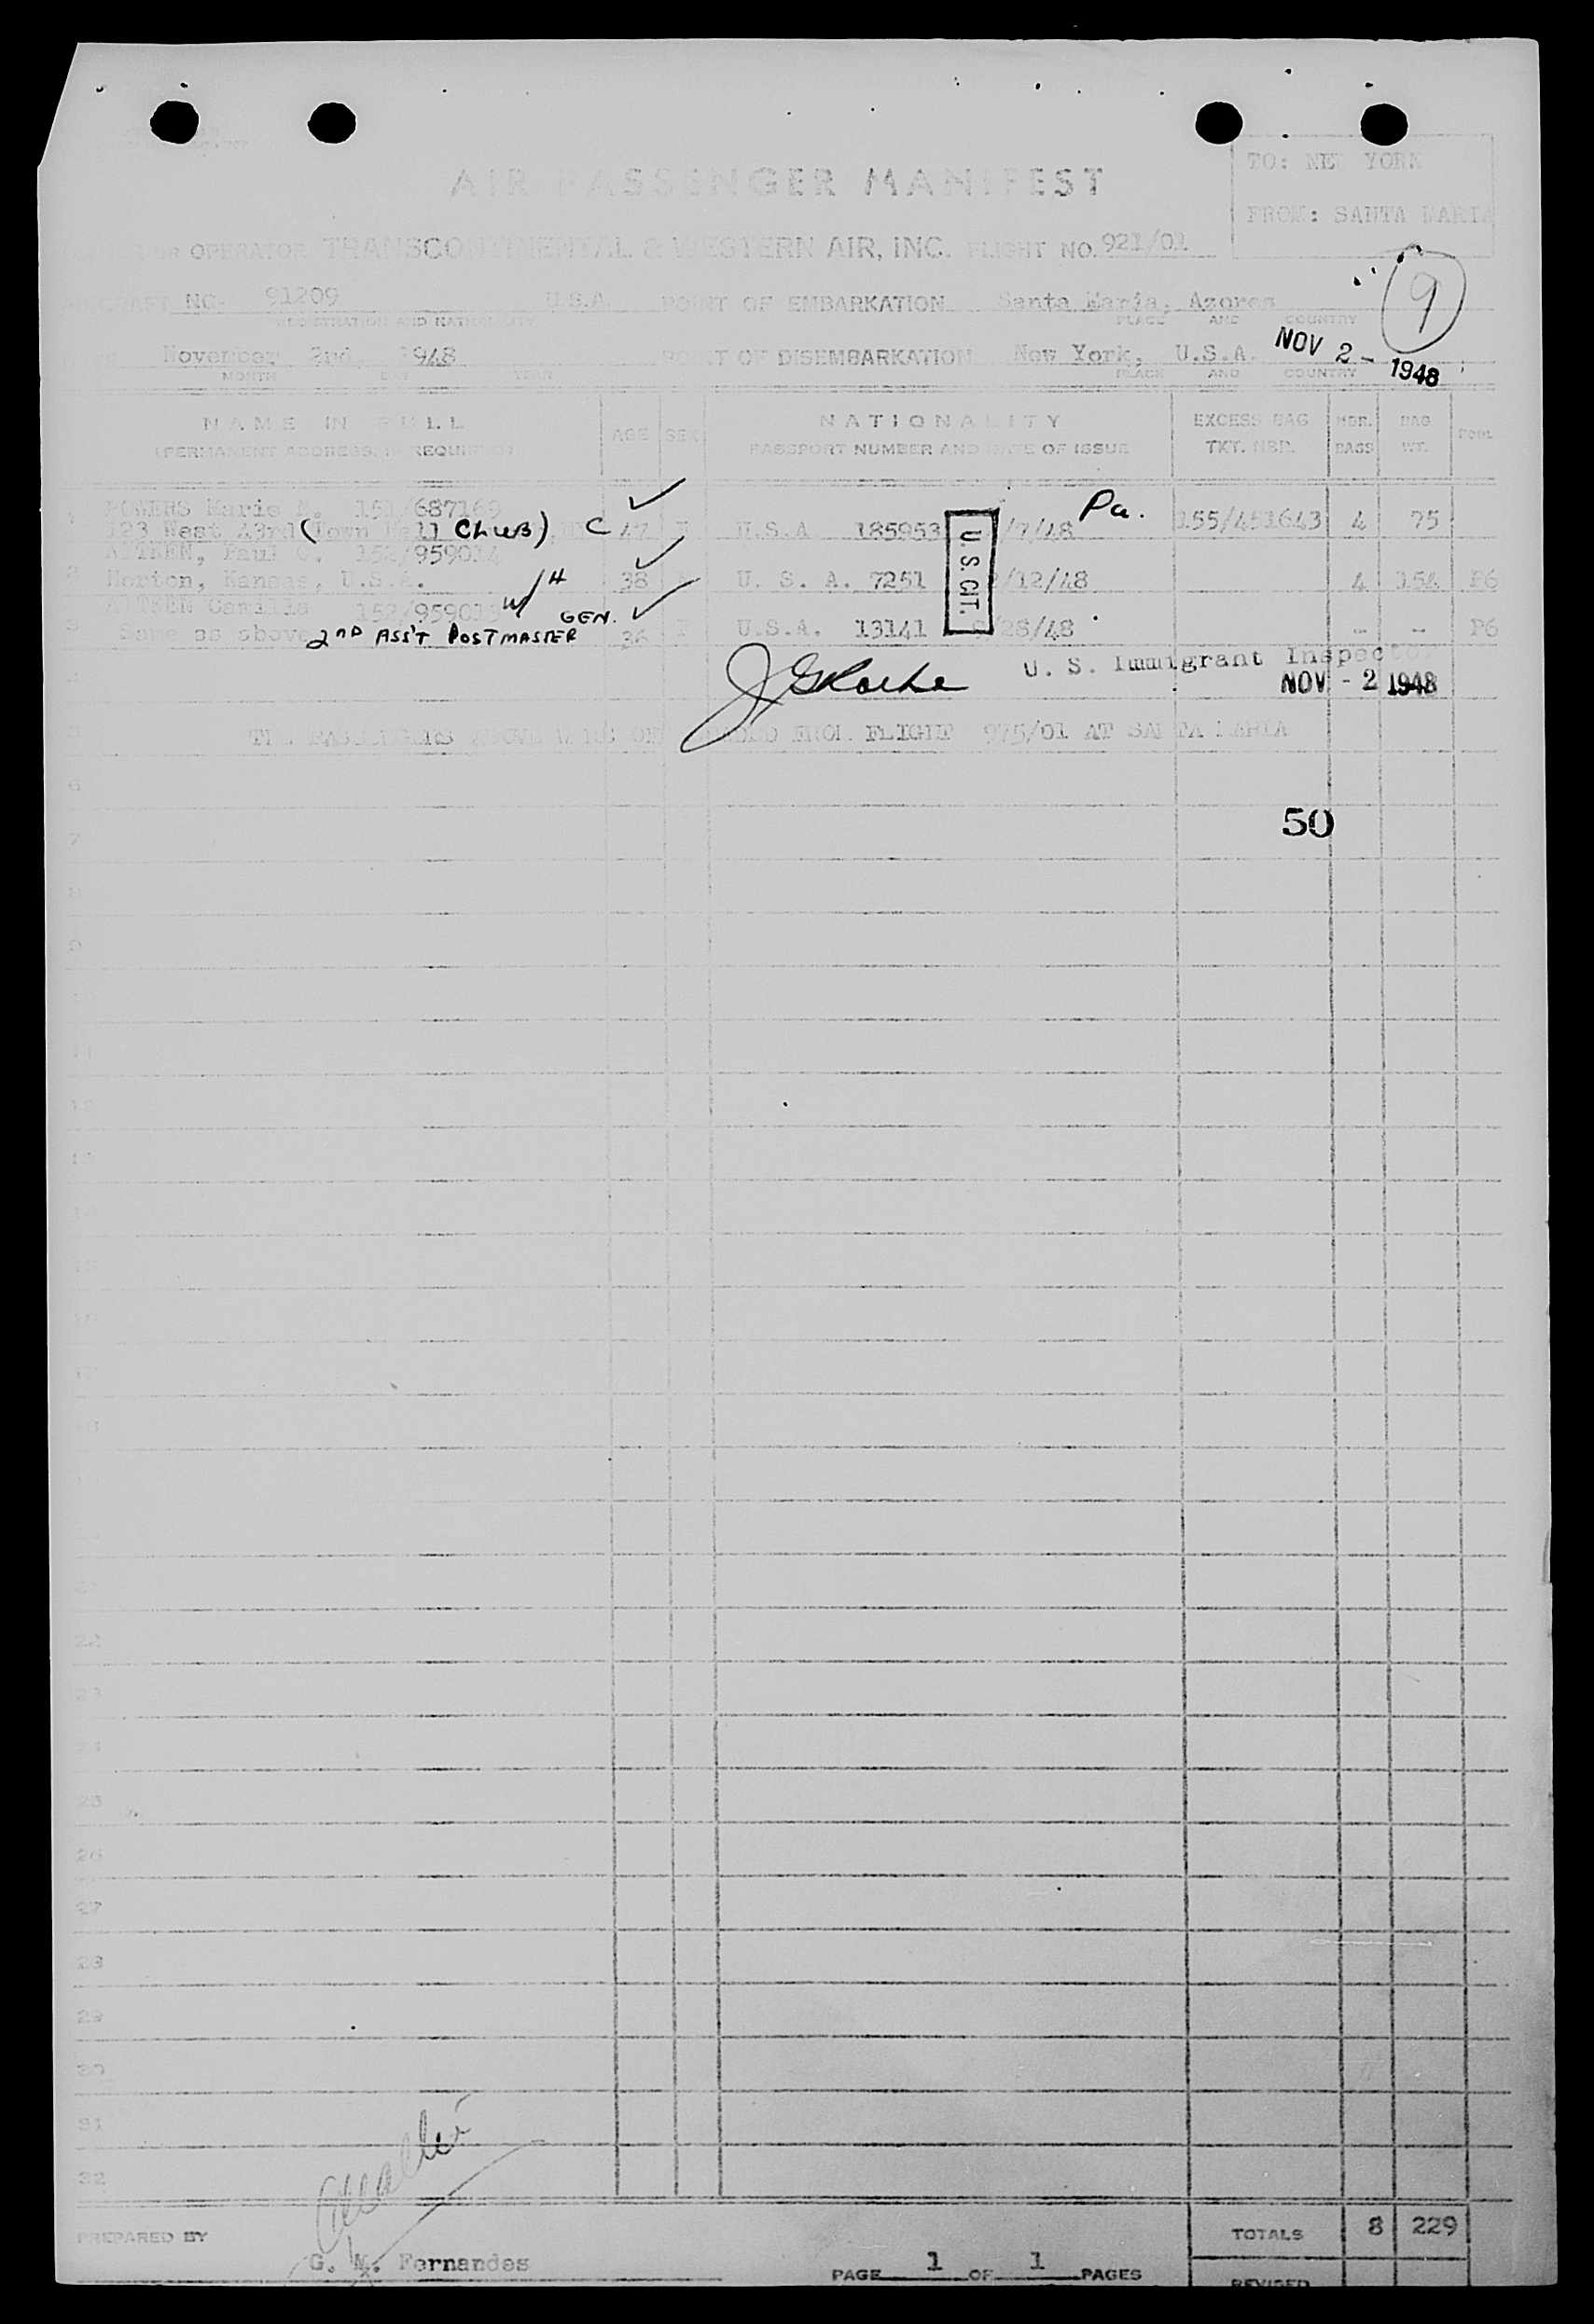 TO: NEW YORK
AIR PASSENGER MANIFEST
FROM: SANTA MARIA
OR OPERATOR TRANSCONTINENTAL & WESTERN AIR, INC. FLIGHT NO. 921/01
9
AIRCRAFT NC- 91209 U.S.A. POINT OF EMBARKATION Santa Maria, Azores
REGISTRATION AND NATIONALITY PLACE AND COUNTRY
November 2nd, 1948 POINT OF DISEMBARKATION New York, U.S.A. NOV 2 - 1948
MONTH DAY YEAR PLACE AND COUNTRY
NAME IN FULL AGE SEX NATIONALITY EXCESS BAG NBR. BAG
(PERMANENT ADDRESS, IF REQUIRED) PASSPORT NUMBER AND DATE OF ISSUE TKT. NBR. PAGS WT.
POWERS Marie 687169 Pa.
123 West 43rd (Town Hall CLUB) C 47 F U.S.A 185953 /7/48 155/451643 4 75
AITKEN, Paul C. 152/959014
2 Norton, Kansas, U.S.A. 38 U. S. A. 7251 /12/48 4 154 P6
AITKEN Camilla w/H GEN.
3 Same as above 2ND ASS'T POSTMASTER 36 F U.S.A. 13141 /28/48 - - P6
U.S. CIT.
U. S. Immigrant Inspector
4 NOV - 2 1948
5 THE PASSENGERS ABOVE WERE OFFLOADED FROM FLIGHT 975/01 AT SANTA MARIA
6
50
7
8
9
22
23
24
25
26
27
28
29
30
31
32
PREPARED BY TOTALS 8 229
G. M. Fernandes
PAGE 1 OF 1 PAGES REVISED